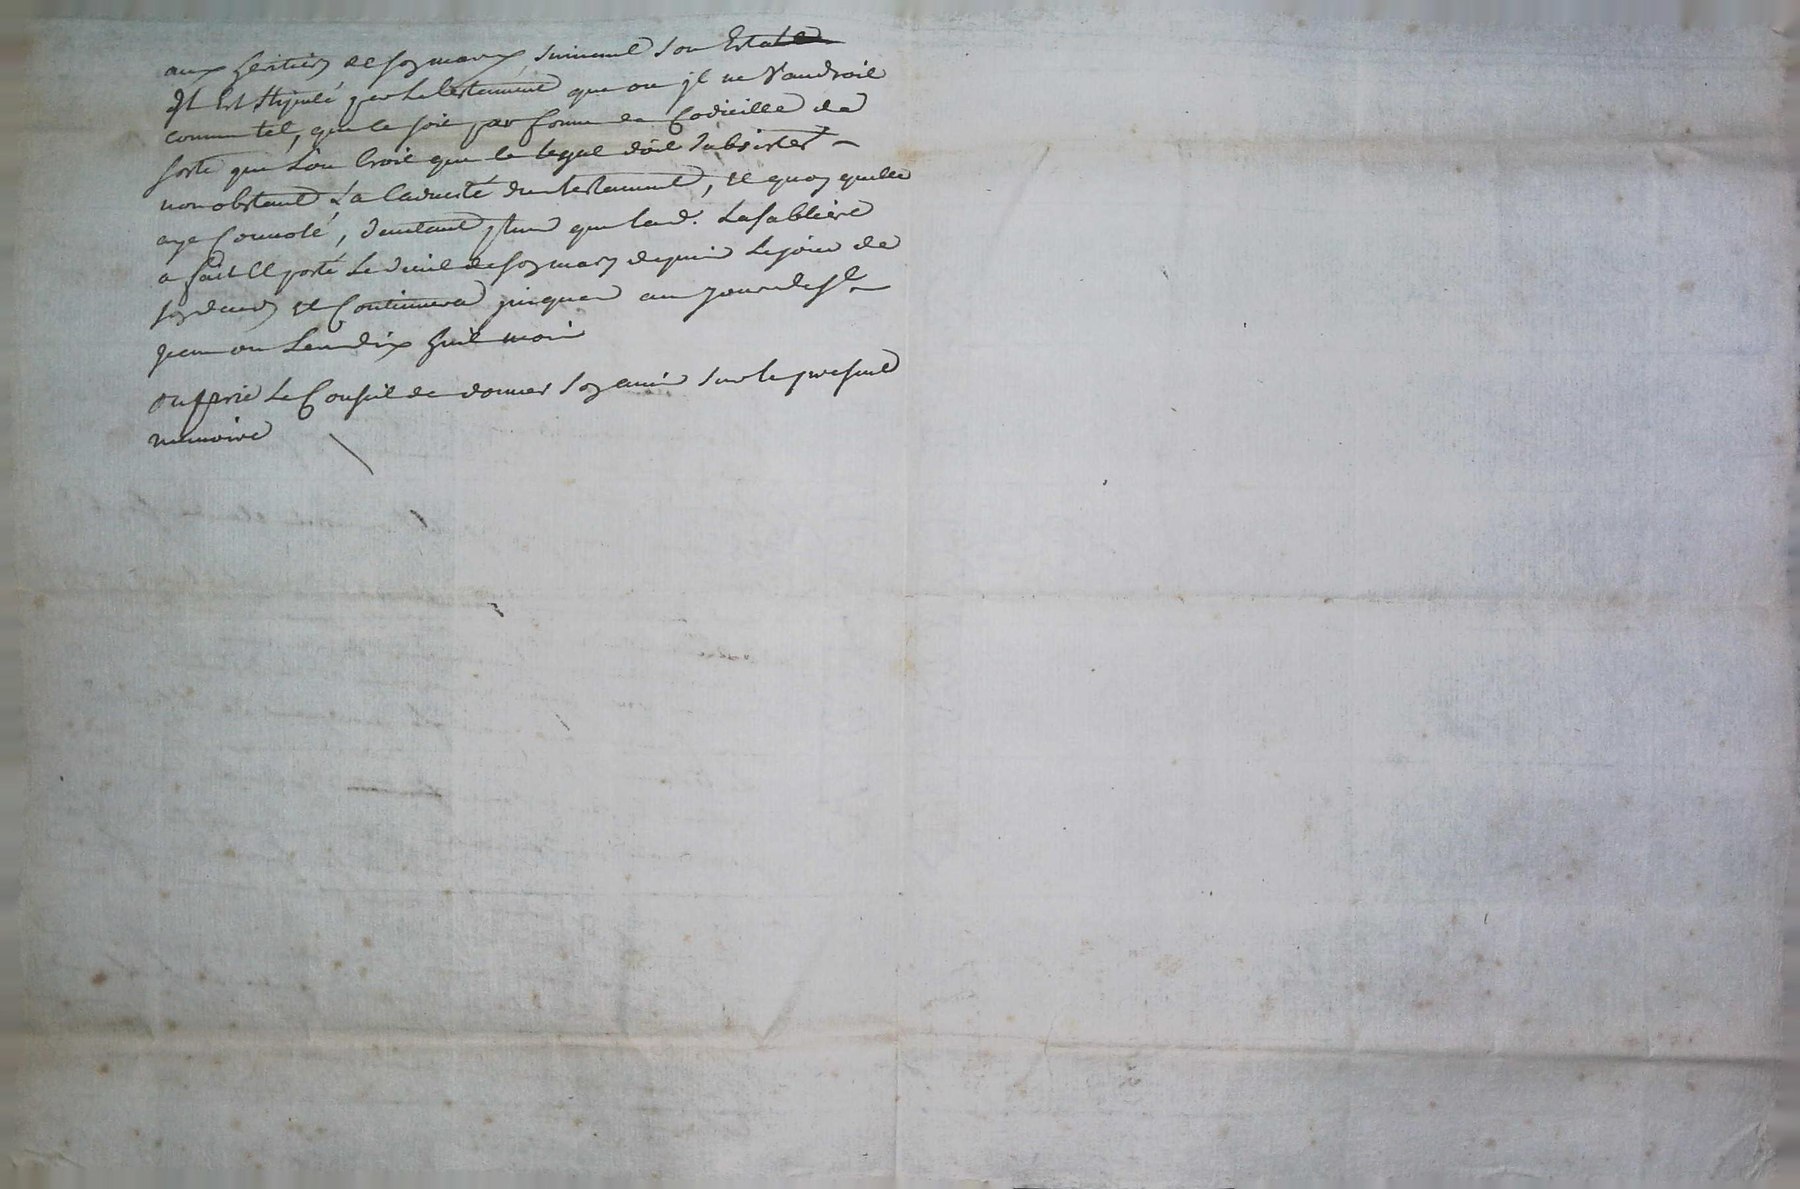 aux heritiers de son mary suivant son Estat
Il Est stipulé par le testament que ou jl ne Vaudroit
comme tel, que ce soit par forme de Codicille de
sorte que Lon Croit que le legat doit subsister
nonobstant La Caducité du testament, et quoy quelle
aye Convolé, dautant plus que lad. Lasabliere
a fait et porté Le deuil de son mary depuis Le jour de
son deces et Continuera jusques au jour de st
jean ou Lan dix huit mois
on prie Le Conseil de donner son avis sur le present
memoire